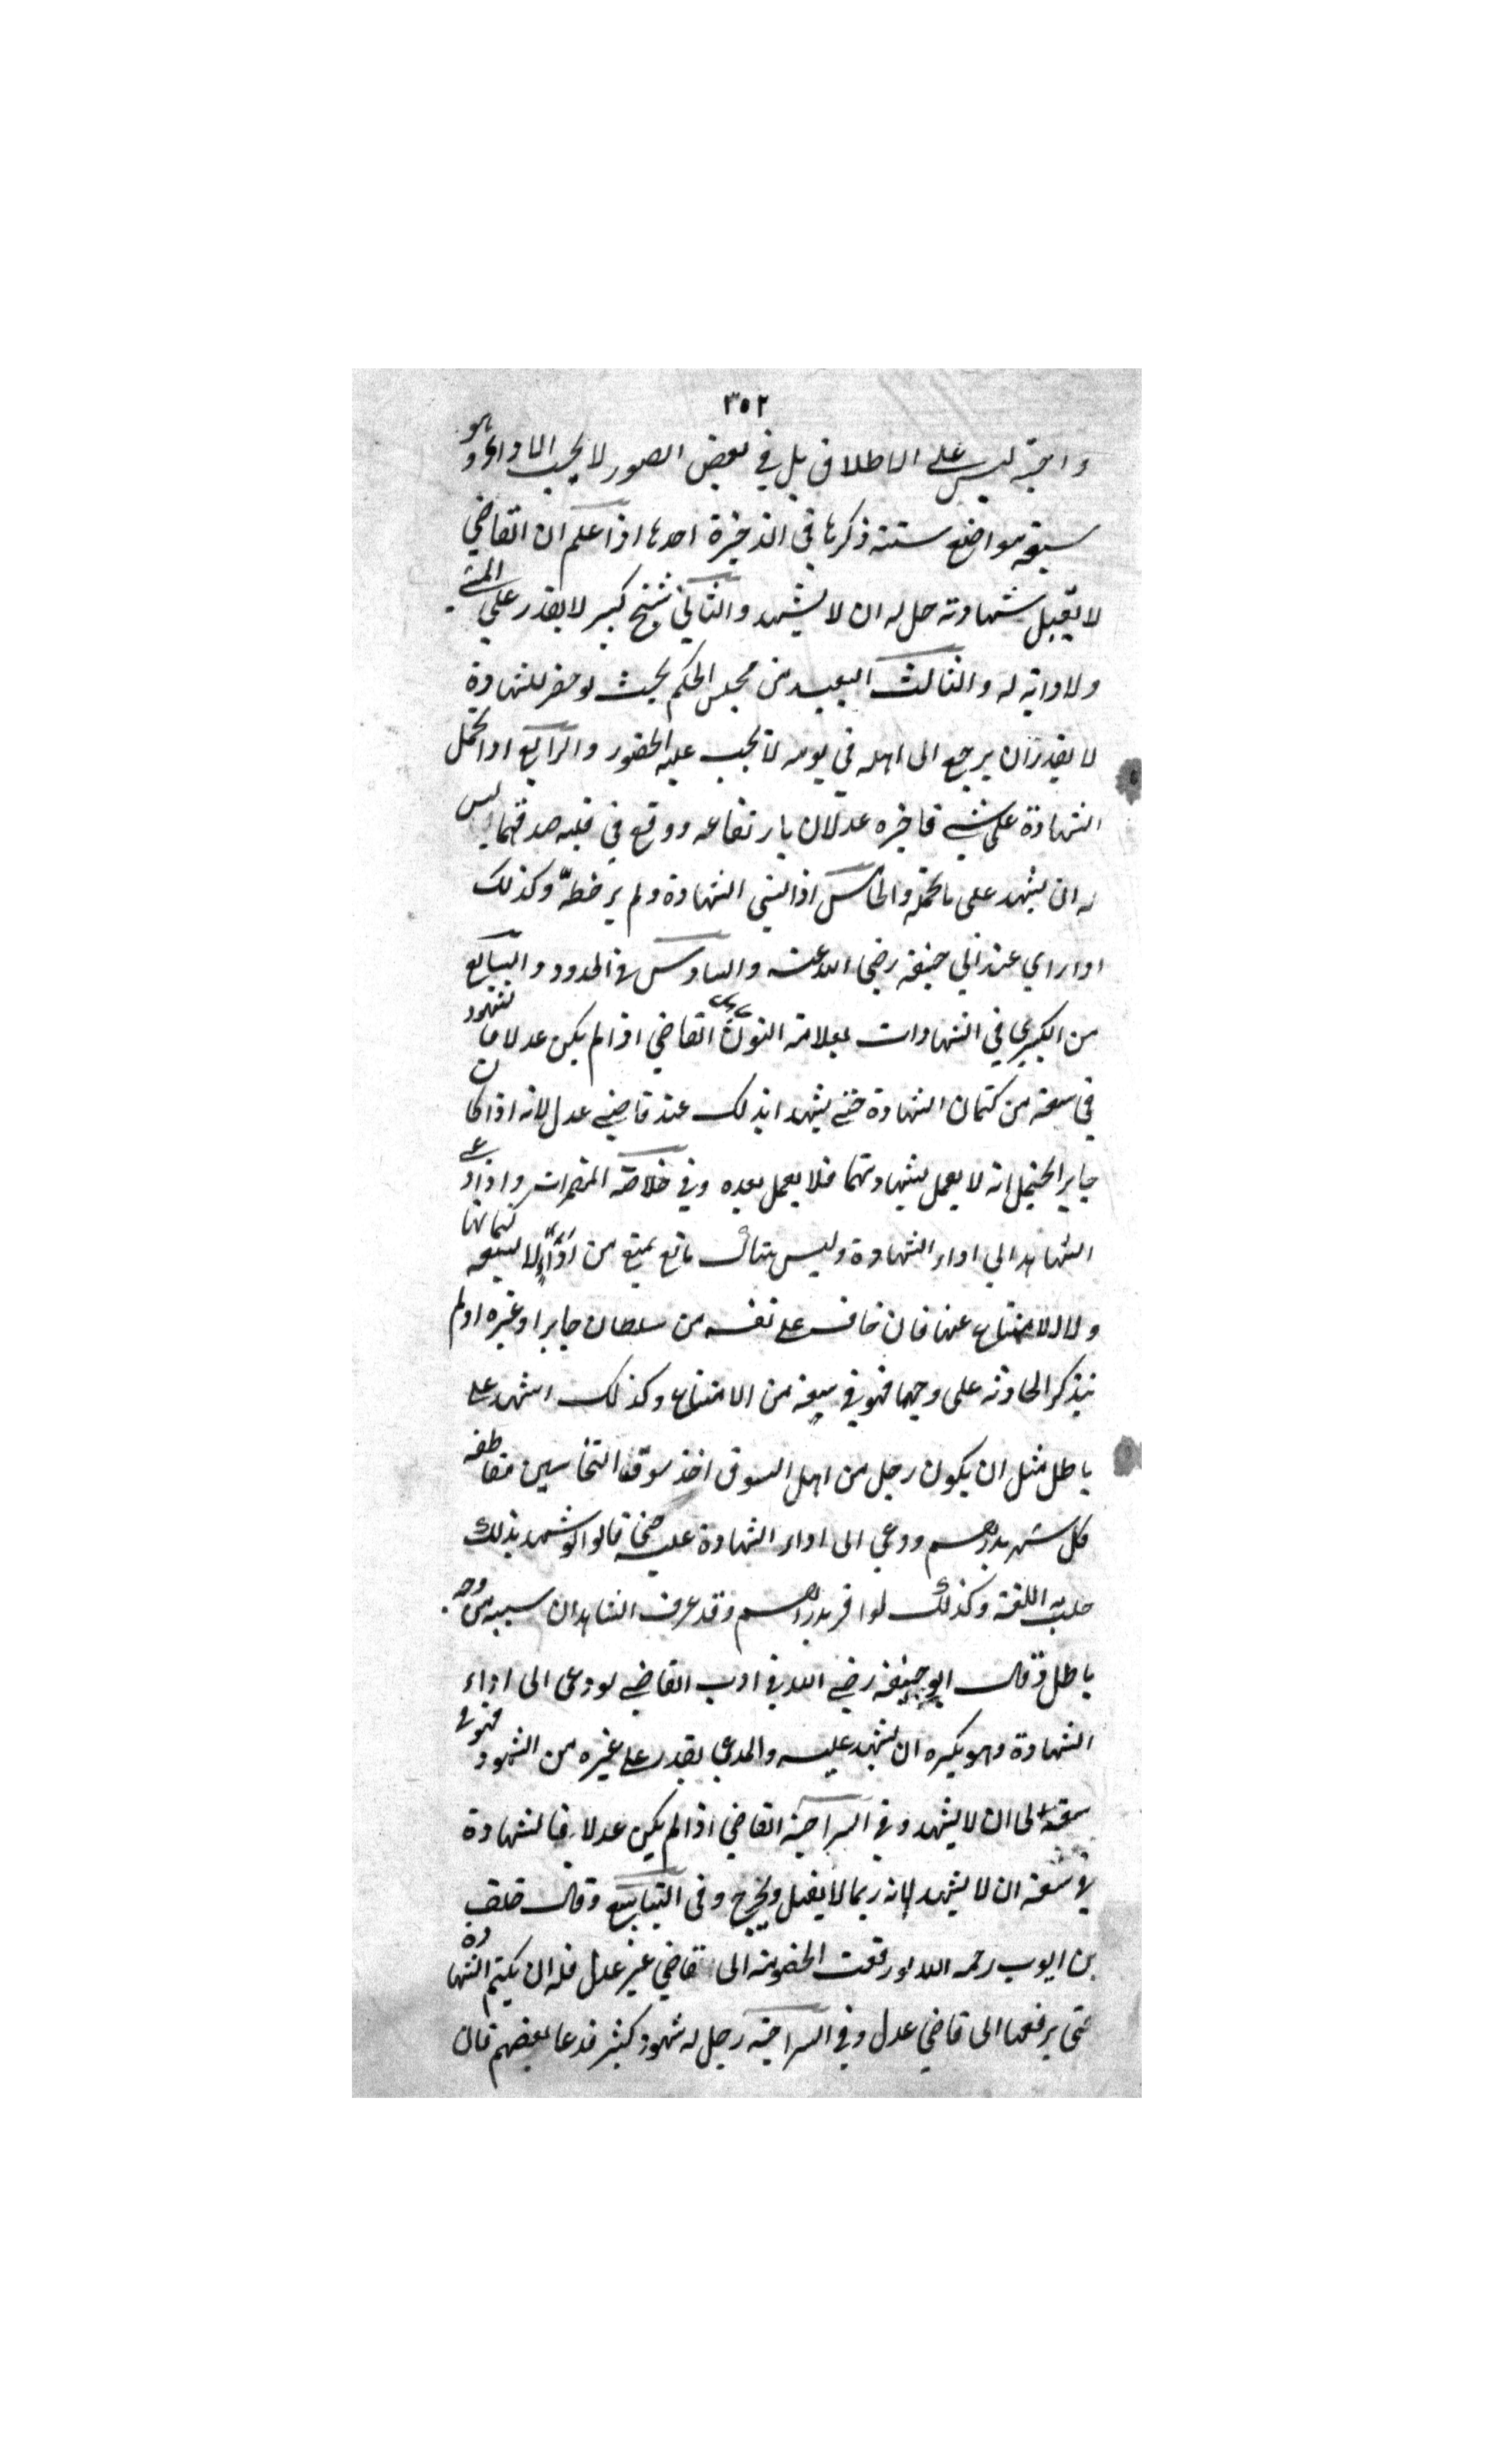 ٣٥٢
واجبة ليس على الاطلاق بل في بعض الصور لا يجب الاداء وهو
سبعة مواضع ستة ذكرها في الذخيرة احدها اذا علم ان القاضي
لا يقبل شهادته حل له ان لا يشهد والثاني شيخ كبير لا يقدر على المشي
ولا دابة له والثالث البعيد من مجلس الحكم بحيث لو حضر للشهادة
لا يقدر ان يرجع الى اهله في يومه لا يجب عليه الحضور والرابع اذا تحمل
الشهادة على شي فاخبره عدلان بارتفاعه ووقع في قلبه صدقهما ليس
له ان يشهد على ما تحمله والخامس اذا نسي الشهادة ولم ير خطه وكذلك
اذا راي عند ابي حنيفة رضي الله عنه والسادس في الحدود والسابع
من الكبري في الشهادات بعلامة النون القاضي اذا لم يكن عدلا فالشهود
في سعة من كتمان الشهادة حتى يشهدا بذلك عند قاضي عدل لانه اذا كان
جايرا يحتمل انه لا يعمل بشهادتهما فلا يعمل بعده وفي خلاصة واذا دعي
الشاهد الي اداء الشهادة وليس هناك مانع يمنع من اداء لا يسعه كتمانها
ولا له الامتناع عنها فان خاف على نفسه من سلطان جابر او غيره او لم
يتذكر الحادثة على وجهها فهو في سعة من الامتناع وكذلك اشهد على
باطل مثل ان يكون رجل من اهل السوق اخذ سوق النخاسين مقاطعة
كل شهر بدراهم ودعي الى اداء الشهادة عليه قالوا لو شهد بذلك
حلت اللعنة وكذلك لو اقر بدراهم وقد عرف الشاهدان سببه من وجه
باطل وقال ابو حنيفة رضي الله في ادب القاضي لو دعى الى اداء
الشهادة وهو يكره ان يشهد عليه والمدعي يقدر على غيره من الشهود فهو في
سعة الى ان لا يشهد وفي السراجية القاضي اذا لم يكن عدلا فالشهادة
في سعة ان لا يشهد لانه ربما لا يقبل ويخرج وفى الينابيع وقال خلف
بن ايوب رحمه الله لو رفعت الخصومة الى قاضي غير عدل فله ان يكتم الشهادة
حتى يرفعها الى قاضي عدل وفي السراجية رجل له شهود كثير فدعا بعضهم قال